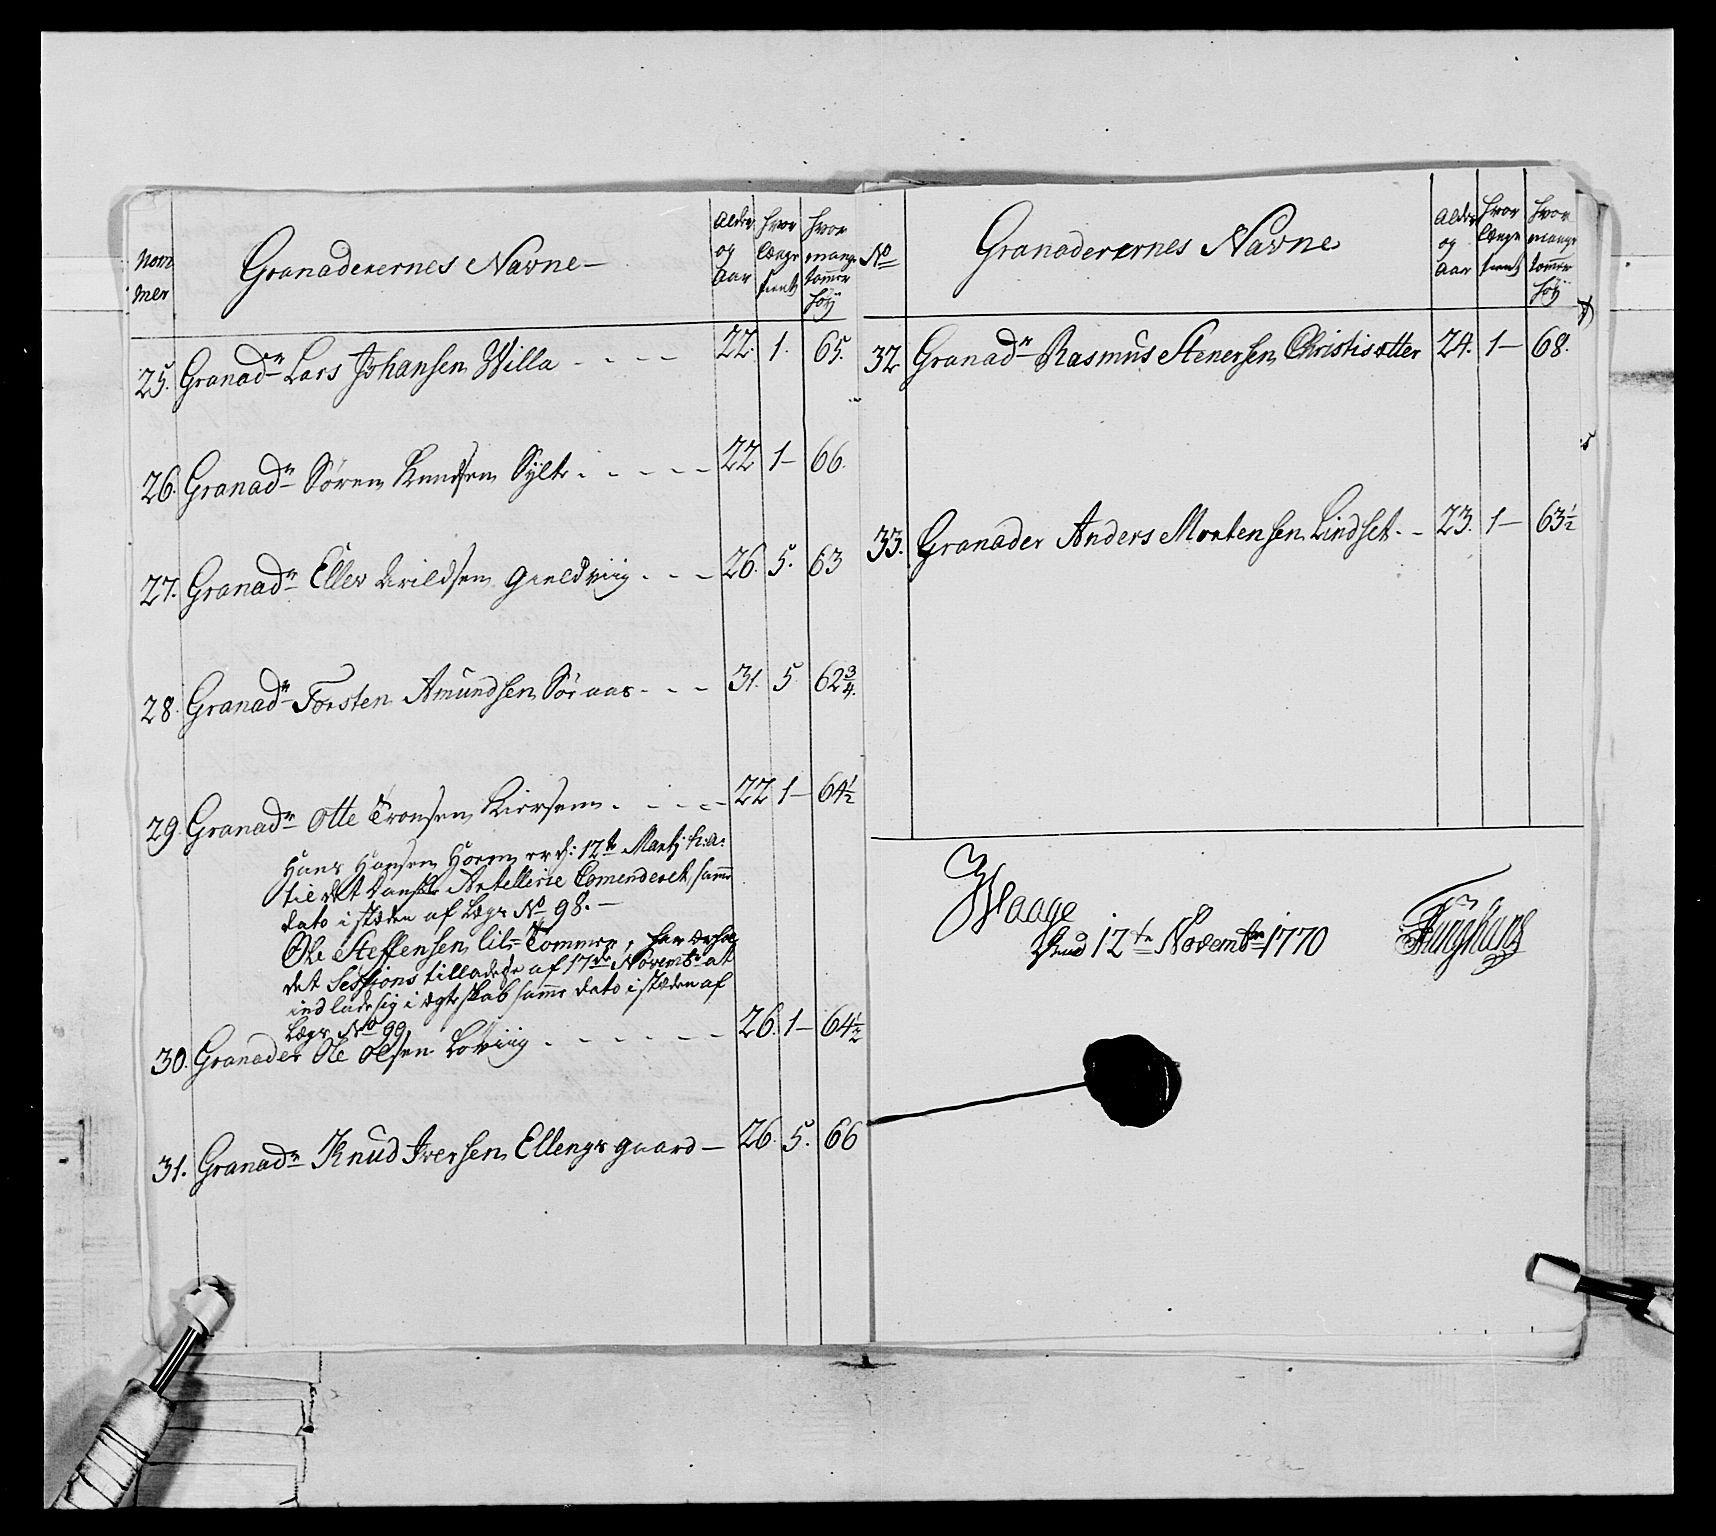 Num
mer
Granaderernes Navne
Alder
og
Aar
hvor
længe
tient
hvor
mange
tommer
høÿ
25. Granadr Lars Johansen Willa 22. 1. 65.
26. Granadr Sören Knudsen Sylte 22 1 66.
27. Granadr Ellev Arildsen Gieldviig 26. 5. 63
28. Granadr Torsten Amundsen Söraas 31. 5 62 3/4.
29. Granadr Otte Tronsen 22 1 64 1/2
Hans Hansen Hoem er d: 12te Martj h: a:
til det Danske Artellerie Comenderet, samme
dato i stæden af Lægs No 98.
Ole Steffensen Lil Tommra, har
det Sessions tilladelse af 17de Novembr at
indlade sig i ægteskab samme dato i stæden af
Lægs No 99
30. Granader Ole Olsen Loviig 26. 1 64 1/2
31. Granadr Knud Iversen Ellengsgaard 26. 5. 66
No
Granaderernes Navne
Alder
og
Aar
hvor
længe
tient
hvor
mange
tommer
höÿ
32 Granadr Rasmus Stenersen Christisætter 24. 1 68.
33. Granader Anders Mortensen Lindset 23. 1 63 1/2
Waage
Dend 12te Novembr 1770